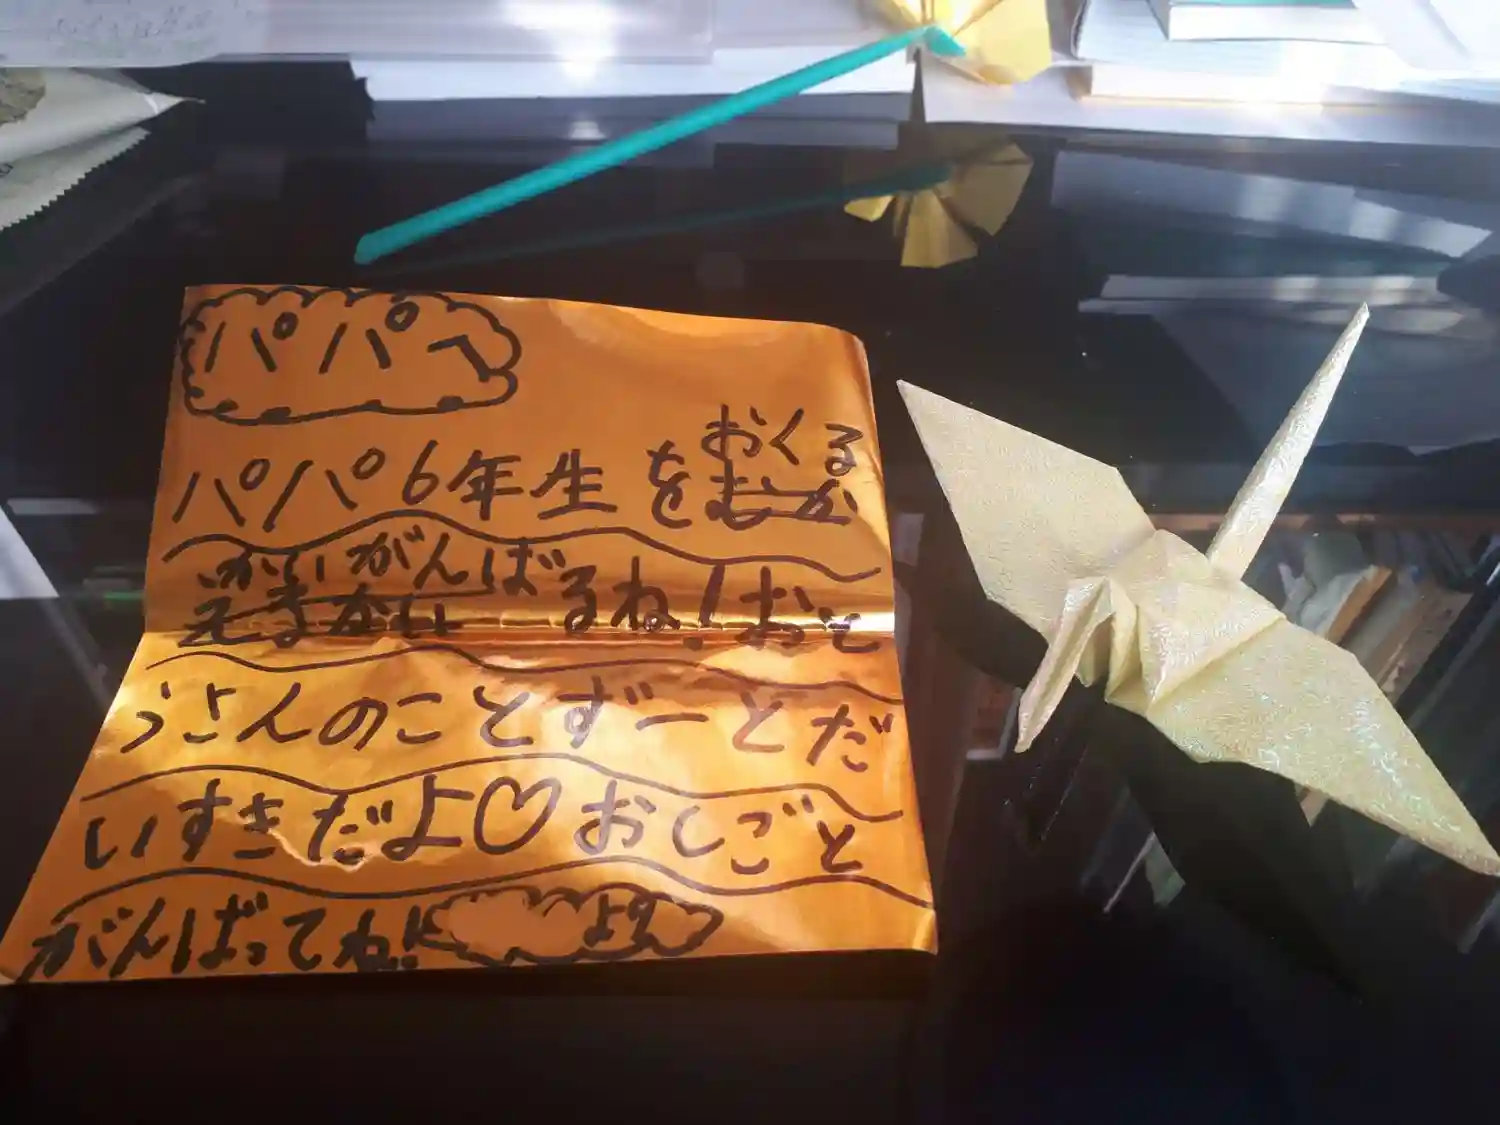 パパへ
パパ6年生をおくる
かいがんばるね!おと
うさんのことずーとだ
いすきだよ♡おしごと
がんばってね!!
より